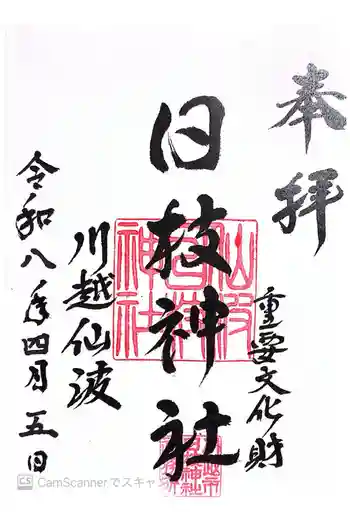 奉拝
重要文化財
日枝神社
川越仙波
令和八年四月五日
CamScannerでスキャ